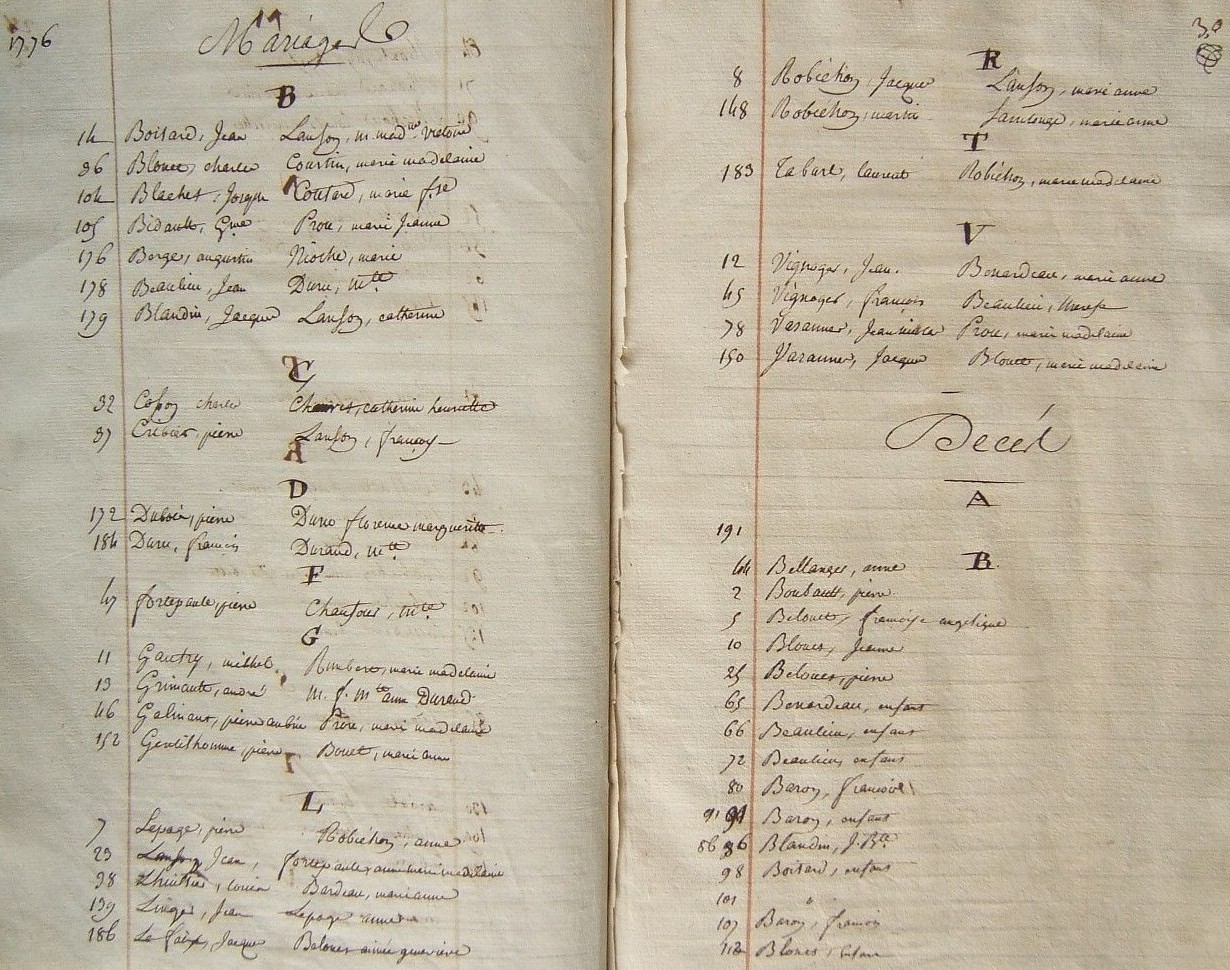 1776
Mariages
B
14 Boisard, Jean Lanson, m. mad.ne victoire
36 Blouet, charles Courtin, marie madelaine
104 Blachet, Joseph Coutard, marie f.se
105 Bidault, Prou, marie Jeanne
176 Berge, augustin Nioche, marie
178 Beaulieu, Jean Duru, m.tte
179 Blandin, Jacque Lanson, catherine
C
32 charles catherine henriette
37 Crebier, pierre Lanson, françoy
D
172 Dubois, pierre Duru florence margueritte
184 Duru, francois Durand, m.tte
F
47 fortepaule, pierre Chaufour, m.te
G
11 Gautry, michel Rimbert, marie madelaine
13 Grimault, andré m. f. m.te anne Durand
46 Galinant, pierre aubin Prou, marie madelaine
152 Gentilhomme, pierre Bouet, marie anne
L
7 Lepage, pierre Robichon, anne
23 Lanson, Jean, fortepaule, anne marie madelaine
38 Lhuillier, Bardeau, marie anne
139 Linger, Jean Lepage anne
186 Le faix, Jacque Belouet aimée genevieve
30
R
8 Robichon, Jacque Lanson, marie anne
148 Robichon, martin marie anne
T
183 Tabart, laurent Robichon, marie madelaine
V
12 Vignoger, Jean. Benardeau, marie anne
45 Vignoger, françois Beaulieu, therese
78 Varanner, Jean Prou, marie madelaine
150 Varanner, Jacque Blouet, marie madelaine
Décès
A
191
B
44 Bellanger, anne
2 Boubault, pierre
5 Belouet, françoise angelique
10 Blouet, Jeanne
25 Belouet, pierre
65 Benardeau, enfant
66 Beaulieu, enfant
72 Beaulieu, enfant
80 Baron, françois
91 91 Baron, enfant
86 86 Blandin, J. B.tte
98 Boisard, enfant
101 "
107 Baron, francois
112 Blouet, enfant